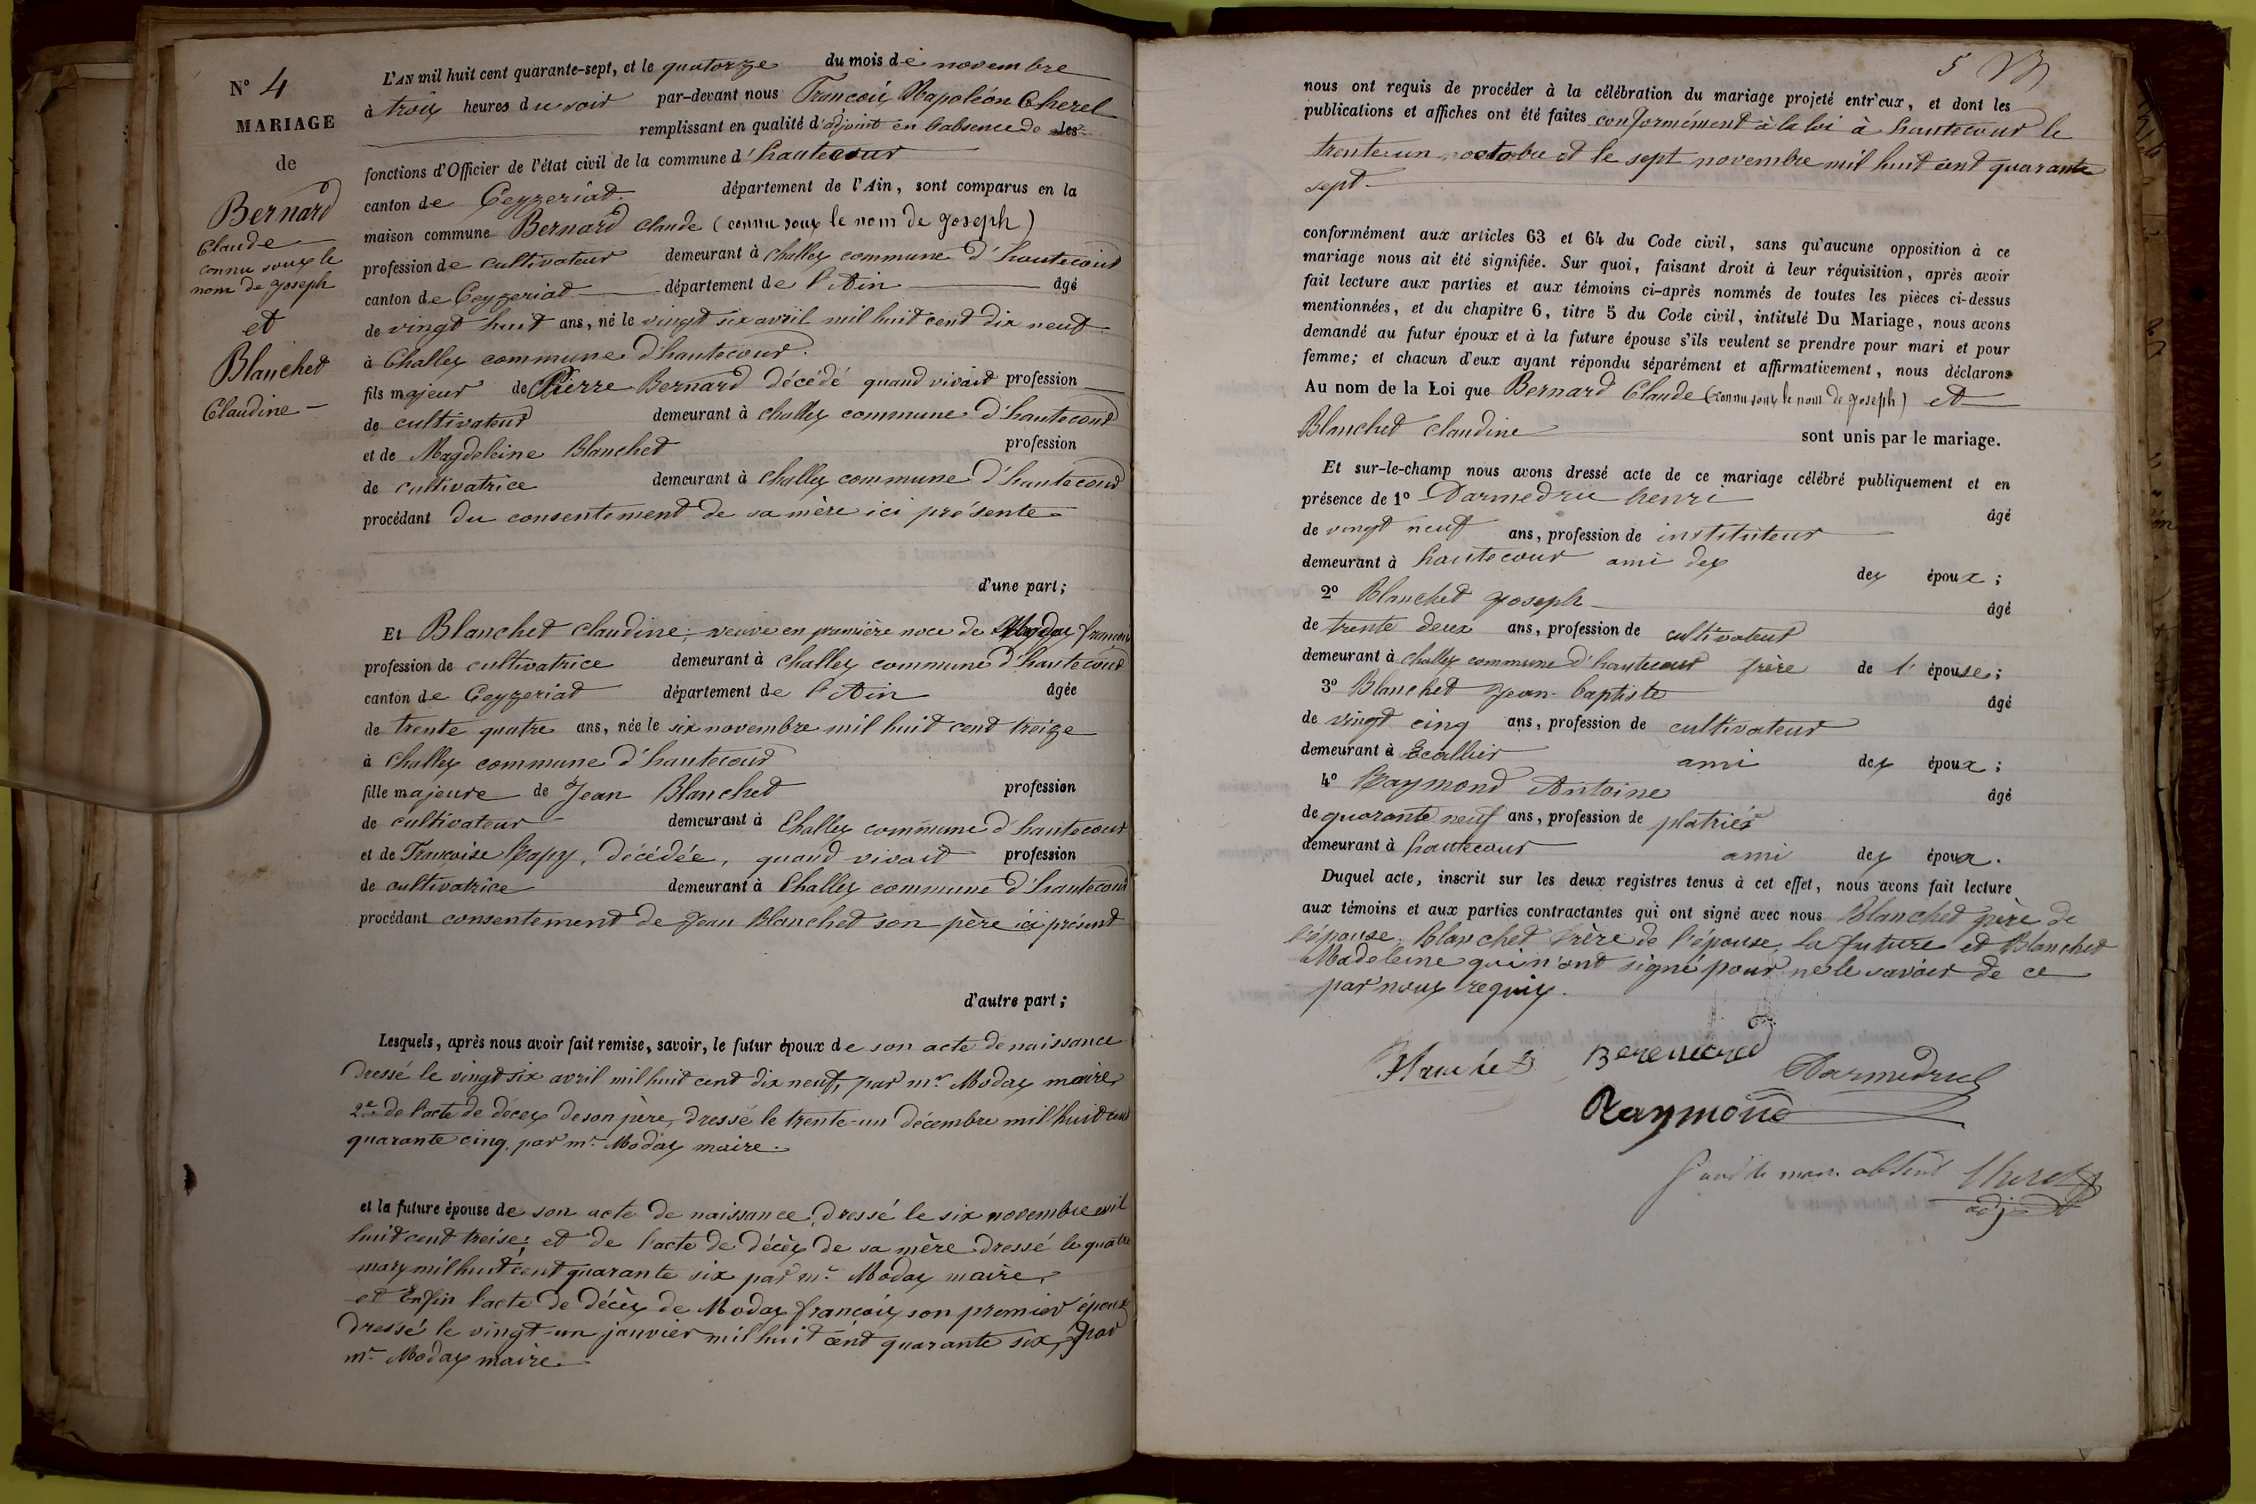 N° 4
MARIAGE
de
Bernard
Claude
connu sous le
nom de joseph
et
Blanchet
Claudine
L'AN mil huit cent quarante-sept, et le quatorze du mois de novembre
à trois heures du soir par-devant nous François Napoléon Cherel
remplissant en qualité d'adjoint en l'absence de les
fonctions d'Officier de l'état civil de la commune d'hautecour
canton de Ceyzeriat département de l'Ain, sont comparus en la
maison commune Bernard Claude (connu sous le nom de joseph)
profession de cultivateur demeurant à challes commune d'hautecour
canton de Ceyzeriat département de l'Ain âgé
de vingt huit ans, né le vingt six avril mil huit cent dix neuf
à Challes commune d'hautecour.
fils majeur de Pierre Bernard décédé quand vivait profession
de cultivateur demeurant à challes commune d'hautecour
et de Magdeleine Blanchet profession
de cultivatrice demeurant à challes commune d'hautecour
procédant du consentement de sa mère ici présente
d'une part;
Et Blanchet Claudine, veuve en première noce de françois
profession de cultivatrice demeurant à challes commune d'hautecour
canton de Ceyzeriat département de l'Ain âgée
de trente quatre ans, née le six novembre mil huit cent treize
à Challes commune d'hautecour
fille majeure de Jean Blanchet profession
de cultivateur demeurant à Challes commune d'hautecour
et de Francoise décédée, quand vivait profession
de cultivatrice demeurant à Challes commune d'hautecour
procédant consentement de Jean Blanchet son père ici présent
d'autre part;
Lesquels, après nous avoir fait remise, savoir, le futur époux de son acte de naissance
dressé le vingt six avril mil huit cent dix neuf, par mr Modas maire
2e de l'acte de décès de son père, dressé le trente-un décembre mil huit cent
quarante cinq, par mr Modas maire.
et la future épouse de son acte de naissance, dressé le six novembre mil
huit cent treise; et de l'acte de décès de sa mère dressé le quatre
mars mil huit cent quarante six par mr Modas maire,
et Enfin l'acte de décès de Modas françois son premier époux
dressé le vingt-un janvier mil huit cent quarante six, par
mr Modas maire
5
nous ont requis de procéder à la célébration du mariage projeté entr'eux, et dont les
publications et affiches ont été faites conformément à la loi à hautecour le
trente-un octobre et le sept novembre mil huit cent quarante
sept
conformément aux articles 63 et 64 du Code civil, sans qu'aucune opposition à ce
mariage nous ait été signifiée. Sur quoi, faisant droit à leur réquisition, après avoir
fait lecture aux parties et aux témoins ci-après nommés de toutes les pièces ci-dessus
mentionnées, et du chapitre 6, titre 5 du Code civil, intitulé Du Mariage, nous avons
demandé au futur époux et à la future épouse s'ils veulent se prendre pour mari et pour
femme; et chacun d'eux ayant répondu séparément et affirmativement, nous déclarons
Au nom de la Loi que Bernard Claude (connu sous le nom de joseph) et
Blanchet Claudine sont unis par le mariage.
Et sur-le-champ nous avons dressé acte de ce mariage célébré publiquement et en
présence de 1° Darmedru henri âgé
de vingt neuf ans, profession de instituteur
demeurant à hautecour ami des des époux;
2° Blanchet joseph âgé
de trente deux ans, profession de cultivateur
demeurant à challes commune d'hautecour frère de l'épouse;
3° Blanchet jean-baptiste âgé
de vingt cinq ans, profession de cultivateur
demeurant à Ecallier ami des époux;
4° Raymond Antoine âgé
de quarante neuf ans, profession de platrier
demeurant à hautecour ami des époux.
Duquel acte, inscrit sur les deux registres tenus à cet effet, nous avons fait lecture
aux témoins et aux parties contractantes qui ont signé avec nous Blanchet père de
l'épouse, Blanchet frère de l'épouse, la future et Blanchet
Madeleine qui n'ont signé pour ne le savoir de ce
par nous requis.
Blanchet Bernard Darmedru
Raymond
Pour le maire absent Cherel
adjt